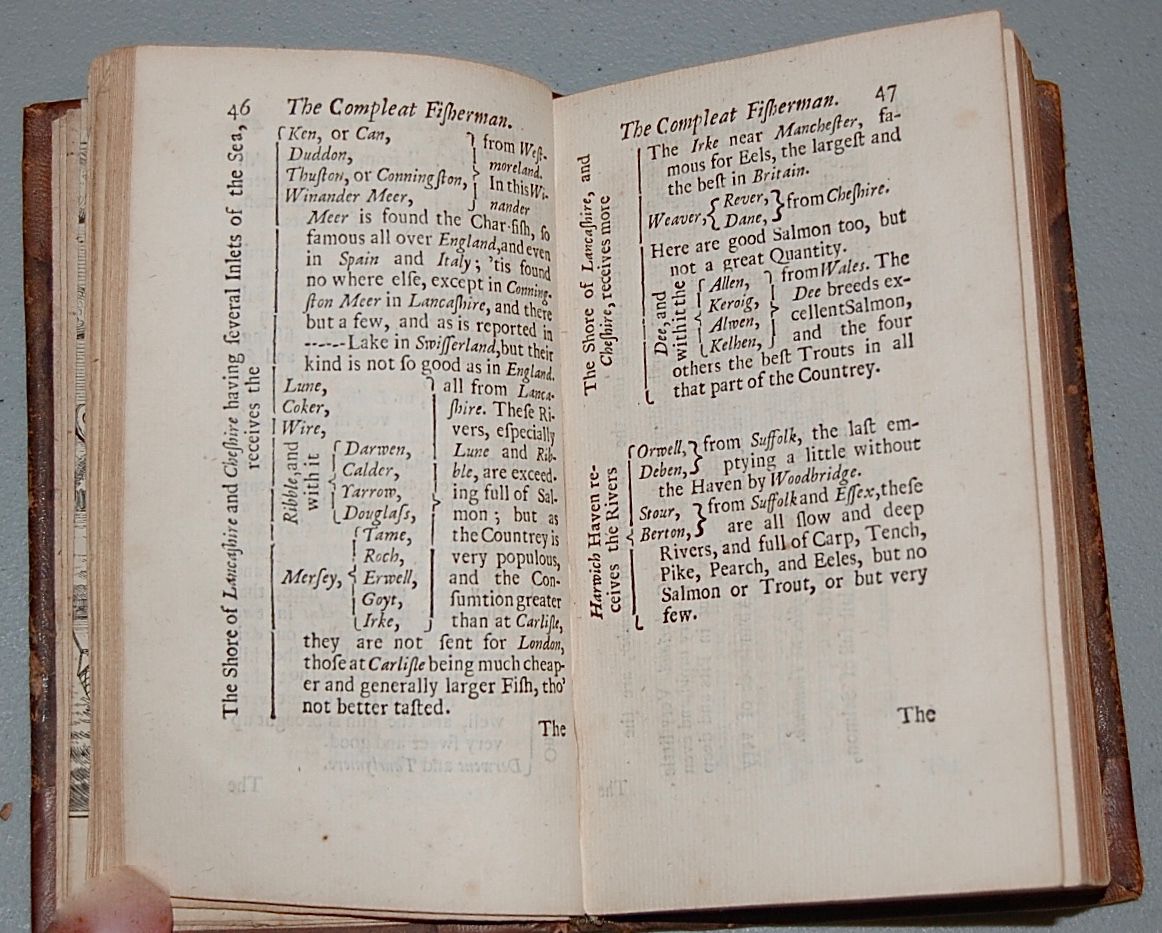 46 The Compleat Fiſherman.
The Shore of Lancaſhire and Cheſhire having ſeveral Inlets of the Sea,
receives the
Ken, or Can,
Duddon,
Thuſton, or Conningſton,
Winander Meer,
from Weſt-
moreland.
In this Wi-
nander
Meer is found the Char-fiſh, ſo
famous all over England, and even
in Spain and Italy; 'tis found
no where elſe, except in Conning-
ſton Meer in Lancaſhire, and there
but a few, and as is reported in
------Lake in Swiſſerland, but their
kind is not ſo good as in England.
Lune,
Coker,
Wire,
Ribble, and
with it
Darwen,
Calder,
Yarrow,
Douglaſs,
Merſey,
Tame,
Roch,
Erwell,
Goyt,
Irke,
all from Lanca-
ſhire. Theſe Ri-
vers, eſpecially
Lune and Rib-
ble, are exceed-
ing full of Sal-
mon; but as
the Countrey is
very populous,
and the Con-
ſumtion greater
than at Carliſle,
they are not ſent for London,
thoſe at Carliſle being much cheap-
er and generally larger Fiſh, tho'
not better taſted.
The
The Compleat Fiſherman. 47
The Shore of Lancaſhire, and
Cheſhire, receives more
The Irke near Mancheſter, fa-
mous for Eels, the largeſt and
the beſt in Britain.
Weaver,
Rever,
Dane,
from Cheſhire.
Here are good Salmon too, but
not a great Quantity.
Dee, and
with it the
Allen,
Keroig,
Alwen,
Kelhen,
from Wales. The
Dee breeds ex-
cellent Salmon,
and the four
others the beſt Trouts in all
that part of the Countrey.
Harwich Haven re-
ceives the Rivers
Orwell,
Deben,
from Suffolk, the laſt em-
ptying a little without
the Haven by Woodbridge.
Stour,
Berton,
from Suffolk and Eſſex, theſe
are all ſlow and deep
Rivers, and full of Carp, Tench,
Pike, Pearch, and Eeles, but no
Salmon or Trout, or but very
few.
The